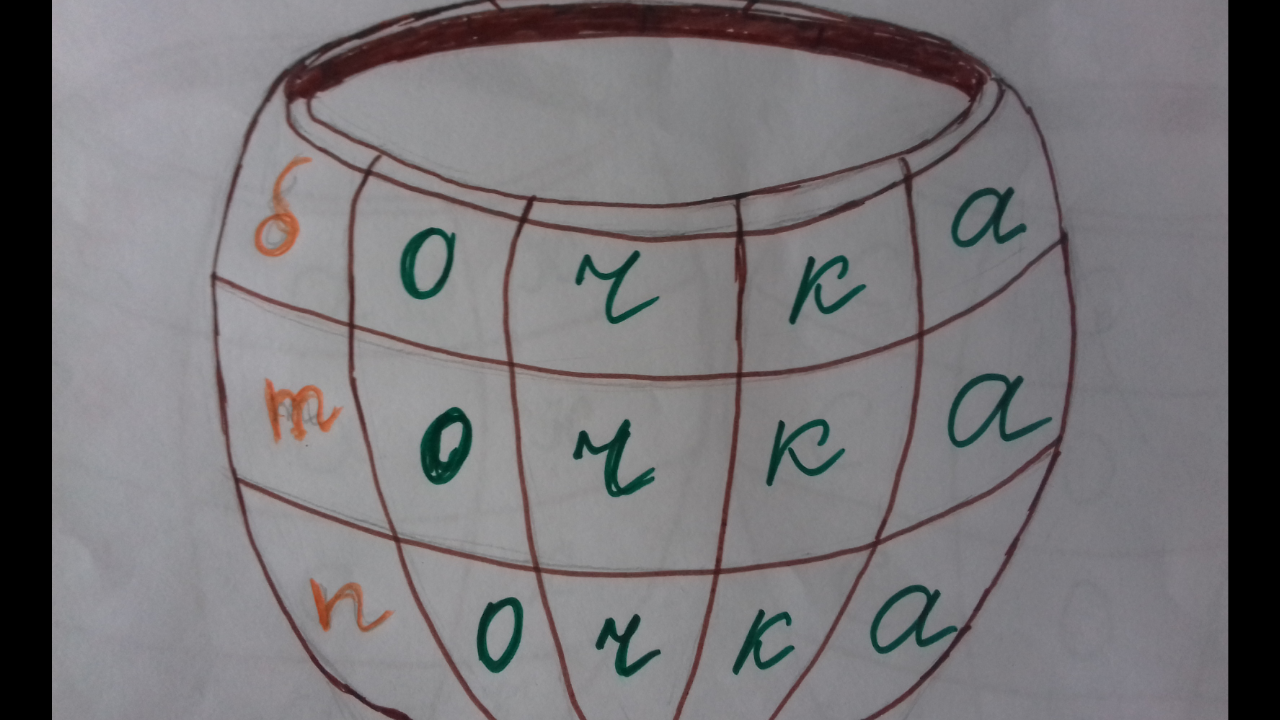 бочка
точка
почка